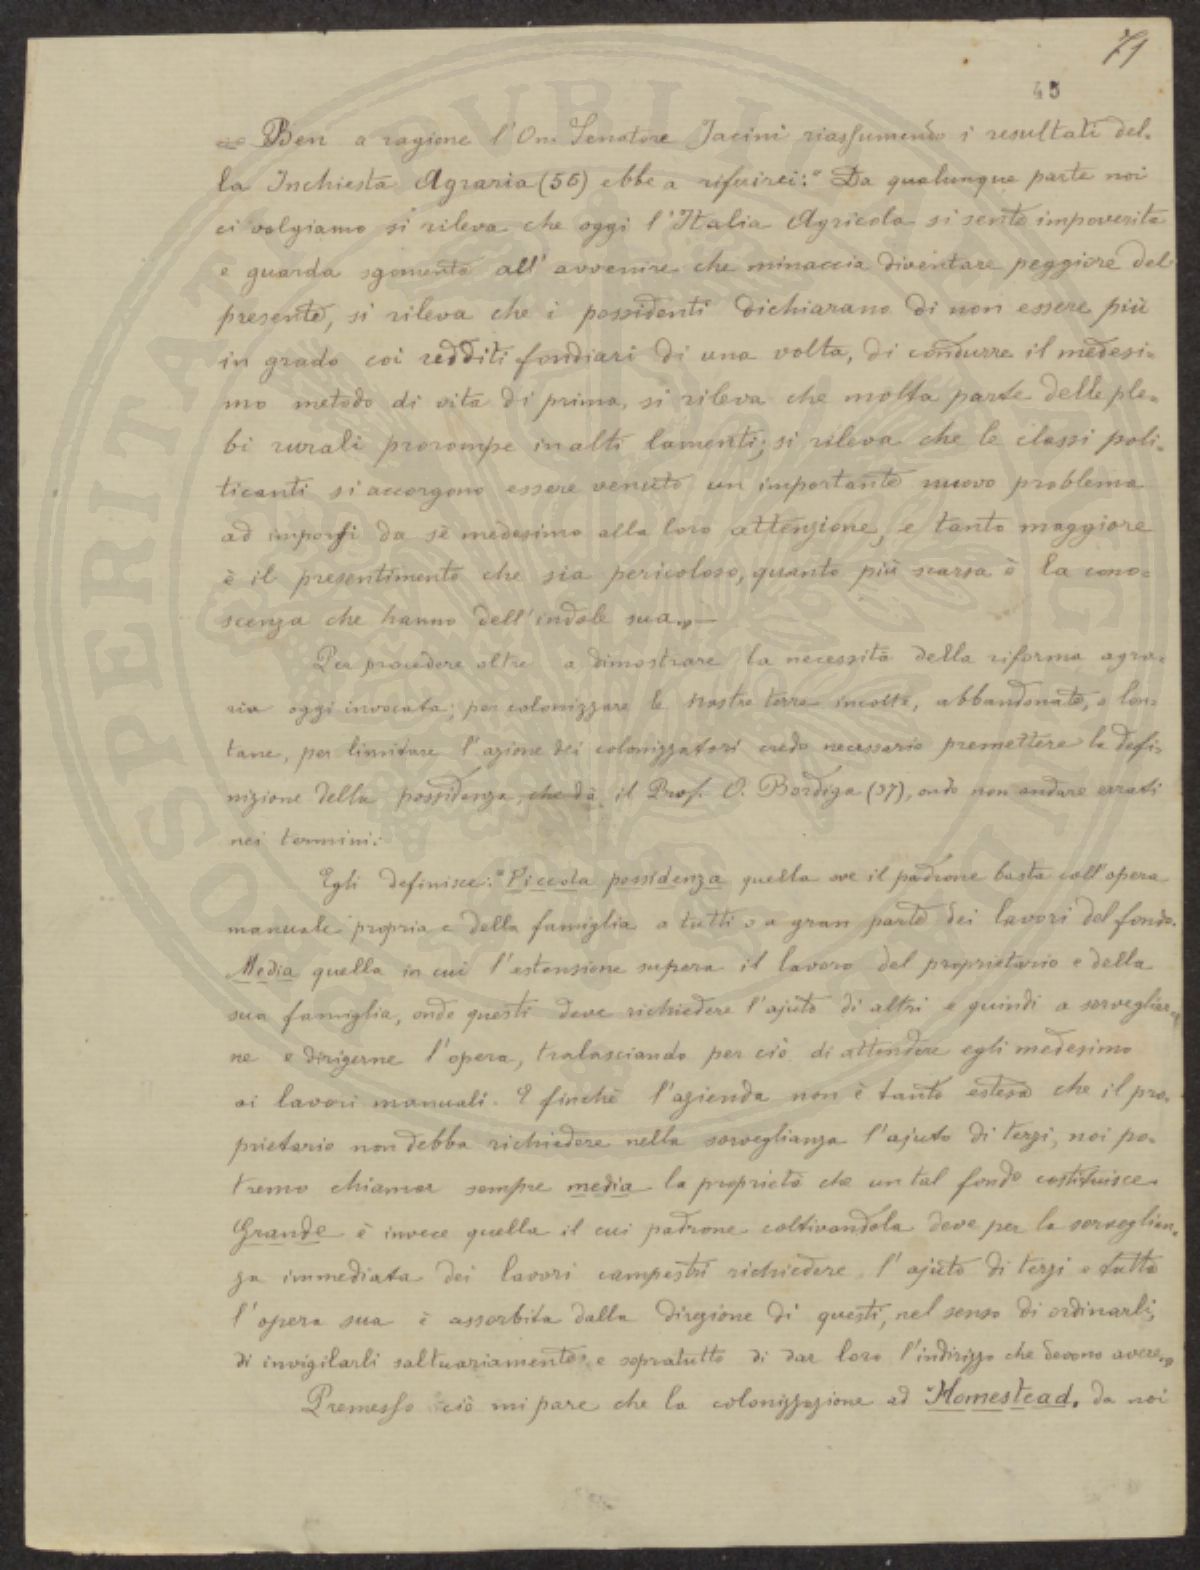 71
45
Ben a ragione l'On. Senatore Jacini riassumendo i resultati del-
la Inchiesta Agraria (56) ebbe a riferirci: "Da qualunque parte noi
ci volgiamo si rileva che oggi l'Italia Agricola si sente impoverita
e guarda sgomenta all'avvenire che minaccia diventare peggiore del
presente, si rileva che i possidenti dichiarano di non essere più
in grado coi redditi fondiari di una volta, di condurre il medesi-
mo metodo di vita di prima, si rileva che molta parte delle ple-
bi rurali prorompe in alti lamenti; si rileva che le classi poli-
ticanti si accorgono essere venuto un importante nuovo problema
ad imporsi da sè medesimo alla loro attenzione, e tanto maggiore
è il presentimento che sia pericoloso, quanto più scarsa è la cono-
scenza che hanno dell'indole sua„—
Per procedere oltre a dimostrare la necessità della riforma agra-
ria oggi invocata; per colonizzare le nostre terre incolte, abbandonate, o lon-
tane, per limitare l'azione dei colonizzatori credo necessario premettere la defi-
nizione della possidenza, che dà il Prof. O. Bordiga (57), onde non andare errati
nei termini:
Egli definisce: "Piccola possidenza quella ove il padrone basta coll'opera
manuale propria e della famiglia a tutti o a gran parte dei lavori del fondo.
Media quella in cui l'estensione supera il lavoro del proprietario e della
sua famiglia, onde questi deve richiedere l'ajuto di altri e quindi a sorvegliar
ne e dirigerne l'opera, tralasciando per ciò di attendere egli medesimo
ai lavori manuali. E finchè l'azienda non è tanto estesa che il pro-
prietario non debba richiedere nella sorveglianza l'ajuto di terzi, noi po-
tremo chiamar sempre media la proprietà che un tal fondo costituisce.
Grande è invece quella il cui padrone coltivandola deve per la sorveglian-
za immediata dei lavori campestri richiedere l'ajuto di terzi e tutta
l'opera sua è assorbita dalla direzione di questi, nel senso di ordinarli,
di invigilarli saltuariamente e sopratutto di dar loro l'indirizzo che devono avere„
Premesso ciò mi pare che la colonizzazione ad "Homestead„ da noi